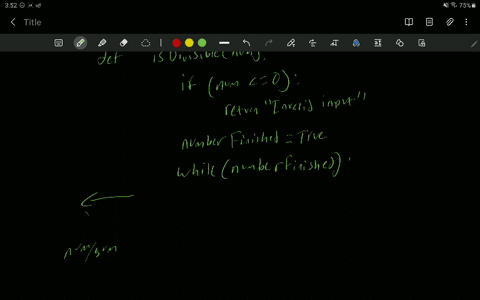 3:52
75%
Title
def isDivisible(num):
if (num <= 0):
return "Invalid input"
numberFinished = True
while (numberfinished):
num/sum